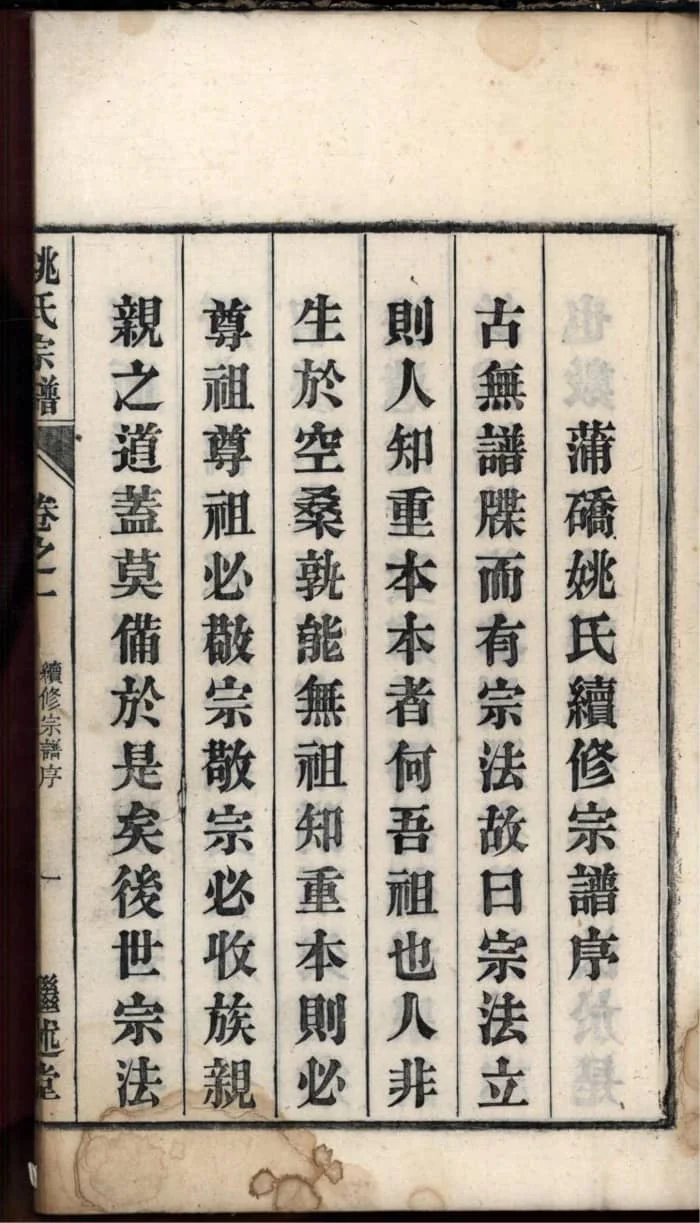 蒲磆姚氏續修宗譜序
古無譜牒而有宗法故曰宗法立
則人知重本本者何吾祖也人非
生於空桑孰能無祖知重本則必
尊祖尊祖必敬宗敬宗必收族親
親之道蓋莫備於是矣後世宗法
姚氏宗譜
卷之一
續修宗譜序
一
繼述堂